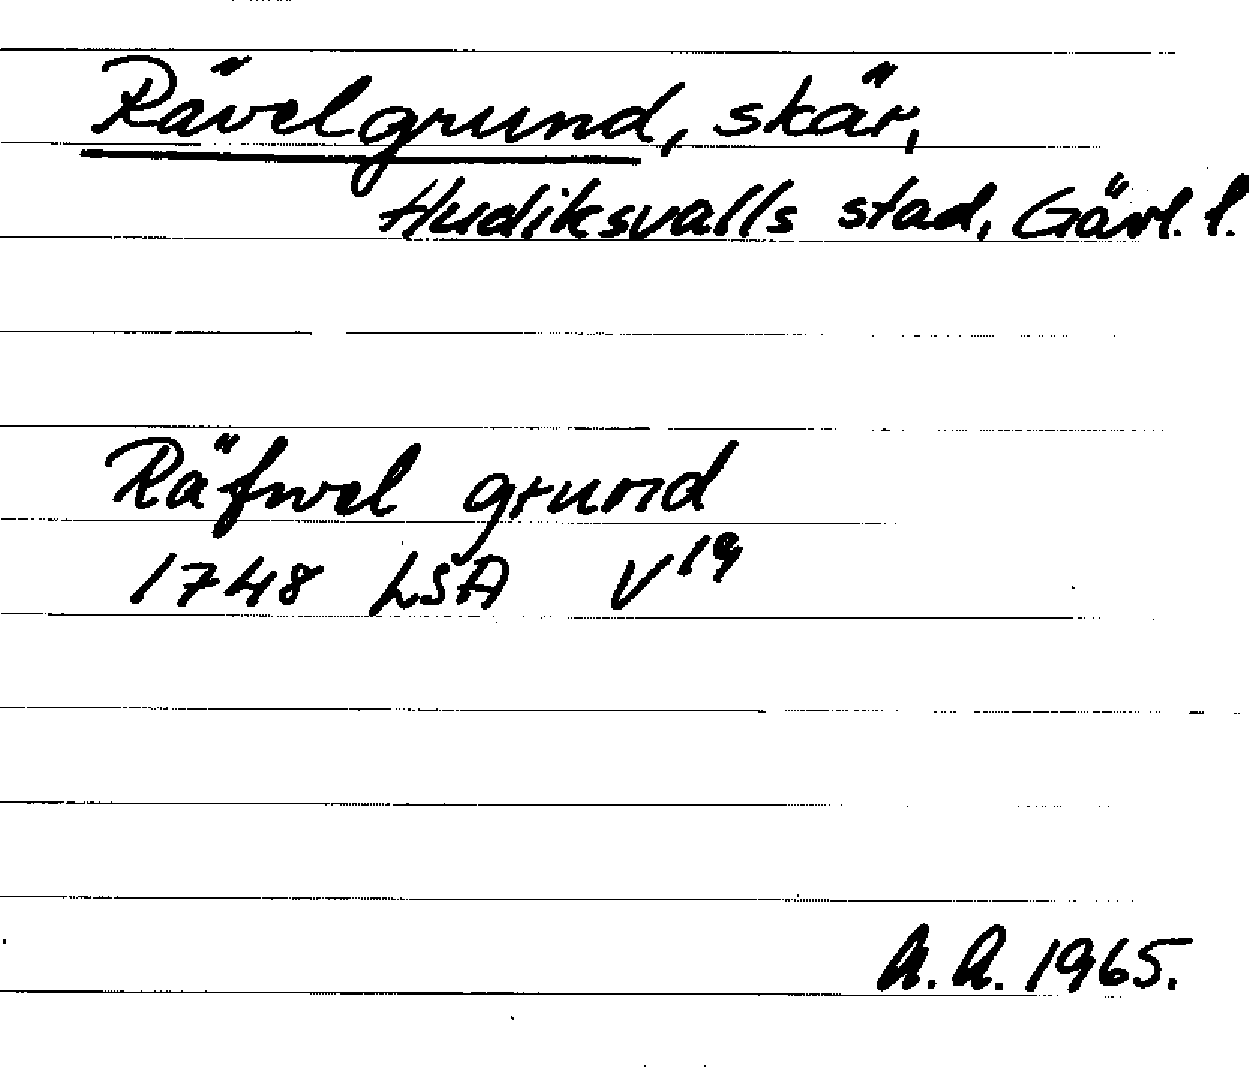 Rävelgrund, skär,
Hudiksvalls stad, Gävl. l.
Räfwel grund
1748 LSA V¹⁹
A. A. 1965.